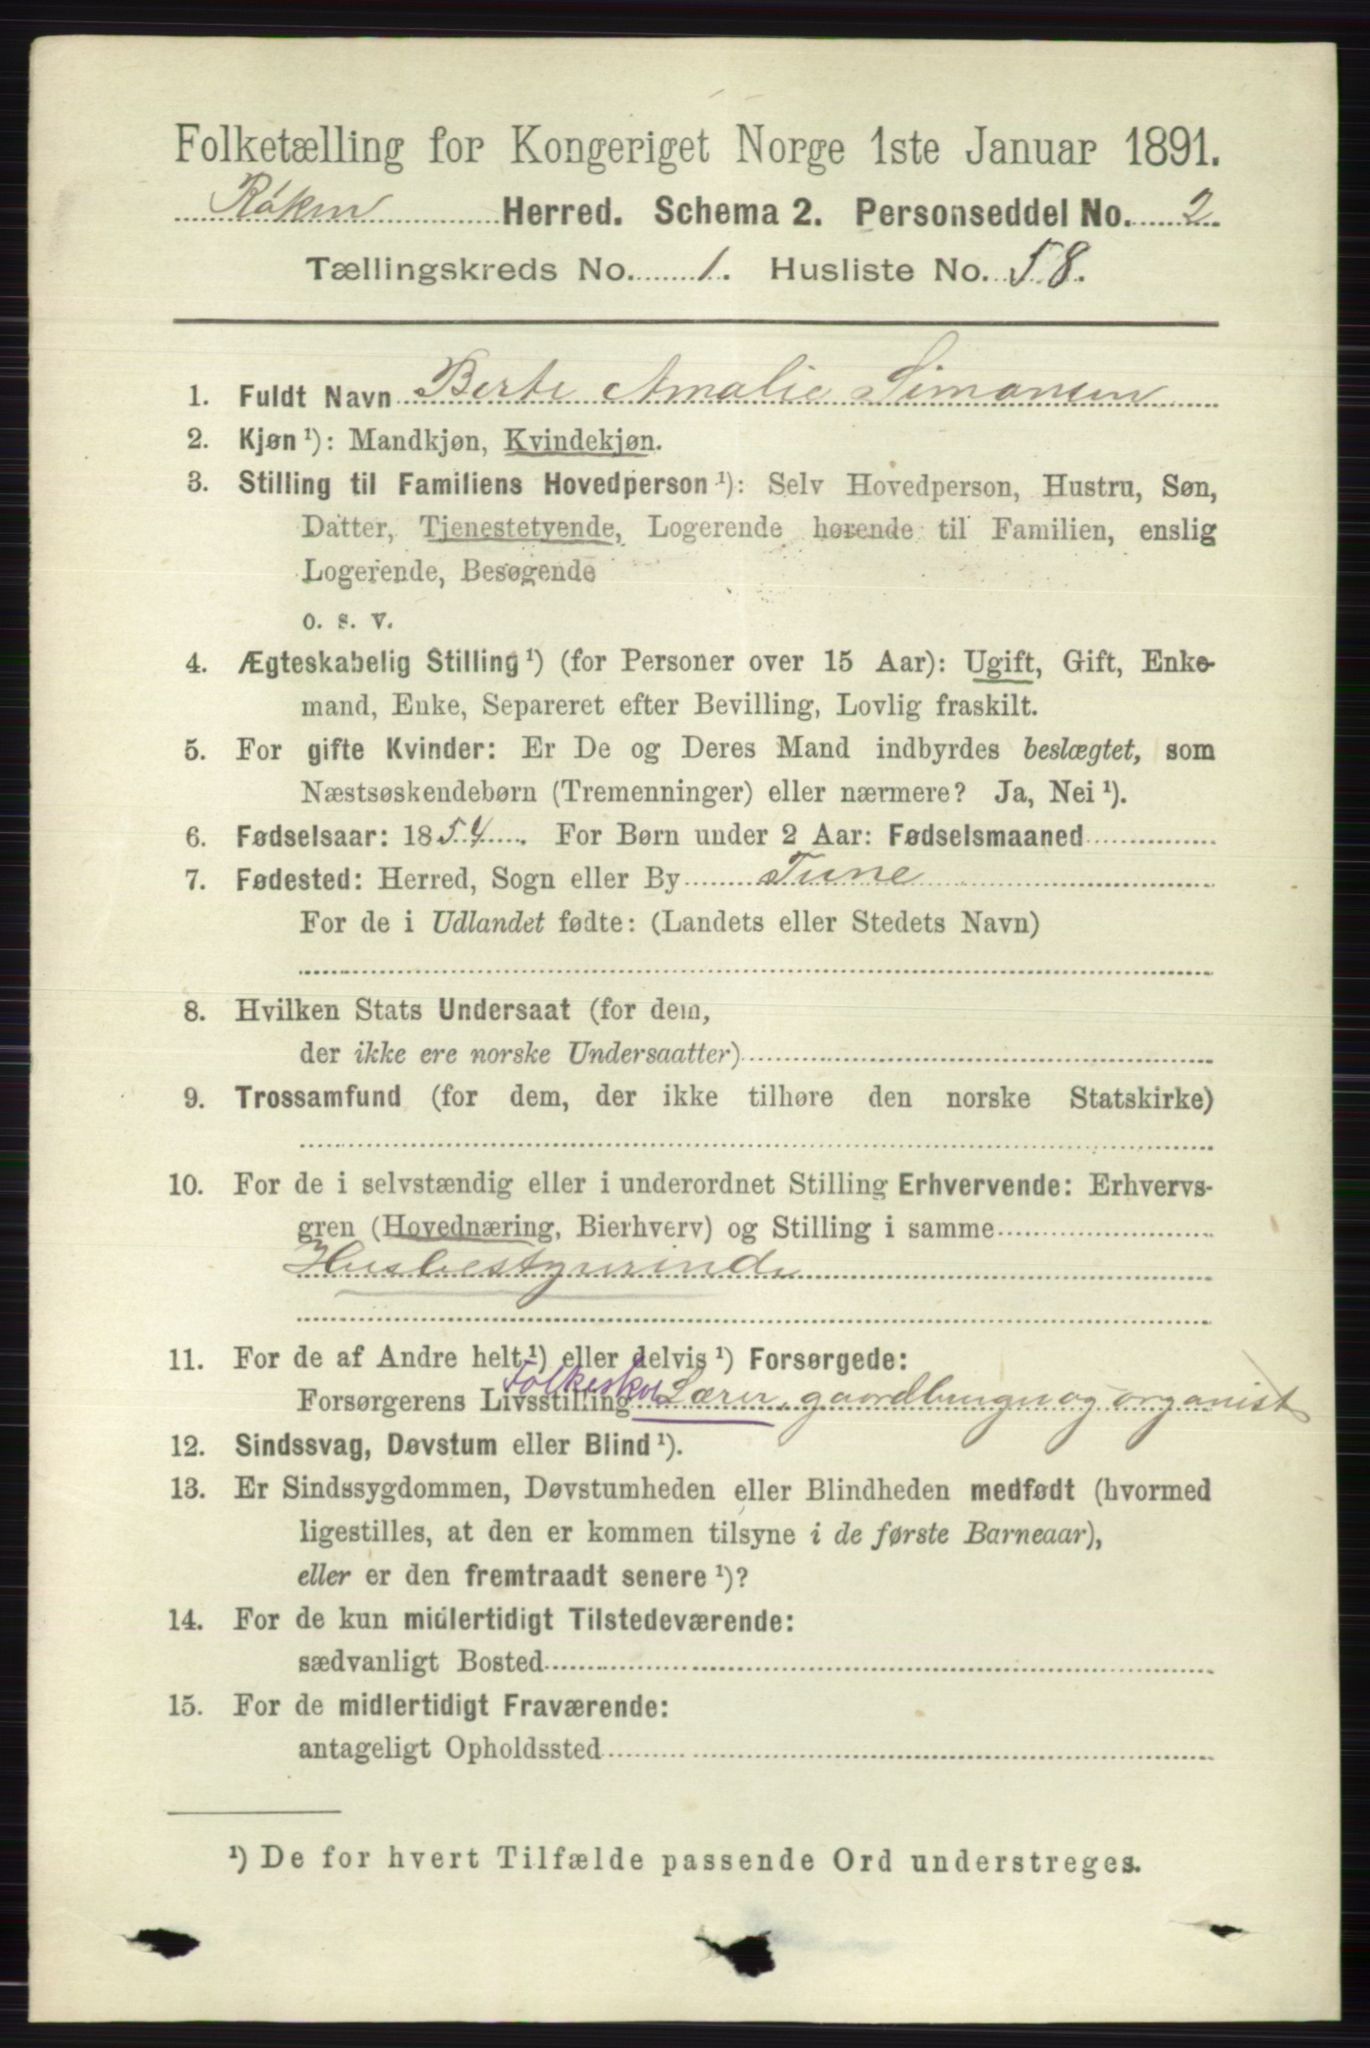 Folketælling for Kongeriget Norge 1ste Januar 1891.
Røken Herred. Schema 2. Personseddel No. 2
Tællingskreds No. 1. Husliste No. 58.
1. Fuldt Navn Berte Amalie Simonsen
2. Kjøn ¹): Mandkjøn, Kvindekjøn.
3. Stilling til Familiens Hovedperson ¹): Selv Hovedperson, Hustru, Søn,
Datter, Tjenestetyende, Logerende hørende til Familien, enslig
Logerende, Besøgende
o. s. v.
4. Ægteskabelig Stilling ¹) (for Personer over 15 Aar): Ugift, Gift, Enke-
mand, Enke, Separeret efter Bevilling, Lovlig fraskilt.
5. For gifte Kvinder: Er De og Deres Mand indbyrdes beslægtet, som
Næstsøskendebørn (Tremenninger) eller nærmere? Ja, Nei ¹).
6. Fødselsaar: 1854. For Børn under 2 Aar: Fødselsmaaned
7. Fødested: Herred, Sogn eller By Tune
For de i Udlandet fødte: (Landets eller Stedets Navn)
8. Hvilken Stats Undersaat (for dem,
der ikke ere norske Undersaatter)
9. Trossamfund (for dem, der ikke tilhøre den norske Statskirke)
10. For de i selvstændig eller i underordnet Stilling Erhvervende: Erhvervs-
gren (Hovednæring, Bierhverv) og Stilling i samme
Husbestyrerinde
11. For de af Andre helt ¹) eller delvis ¹) Forsørgede:
Folkeskole
Forsørgerens Livsstilling Lærer, gaardbruger og organist
12. Sindssvag, Døvstum eller Blind ¹).
13. Er Sindssygdommen, Døvstumheden eller Blindheden medfødt (hvormed
ligestilles, at den er kommen tilsyne i de første Barneaar),
eller er den fremtraadt senere ¹)?
14. For de kun midlertidigt Tilstedeværende:
sædvanligt Bosted
15. For de midlertidigt Fraværende:
antageligt Opholdssted
¹) De for hvert Tilfælde passende Ord understreges.